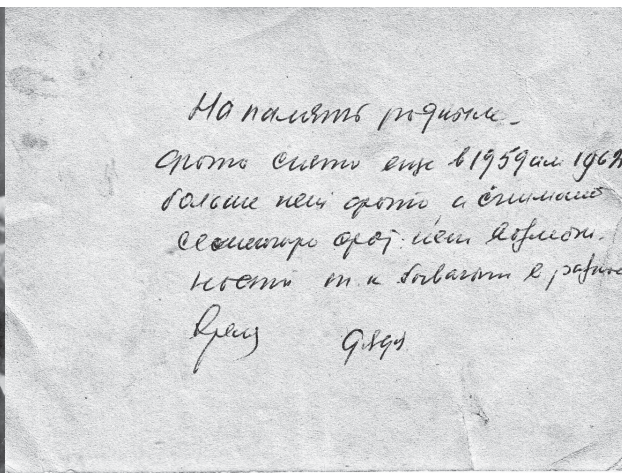 На память родным.
фото снято еще в 1959 или 1962
больше нет фото а снимать
семейную фот. нет возмож.
ности т. к бывают в разное
время дядя